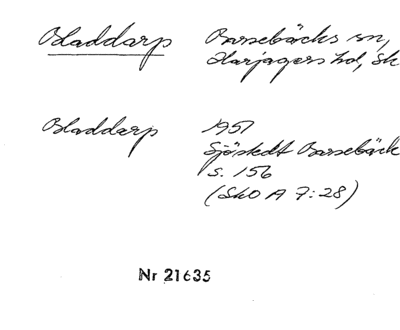 Bladdarp Barsebäcks sn,
Harjagers hd, Sk
Bladdarp 1957
Sjöstedt Barsebäck
s. 156
(SkO A 7:28)
Nr 21635